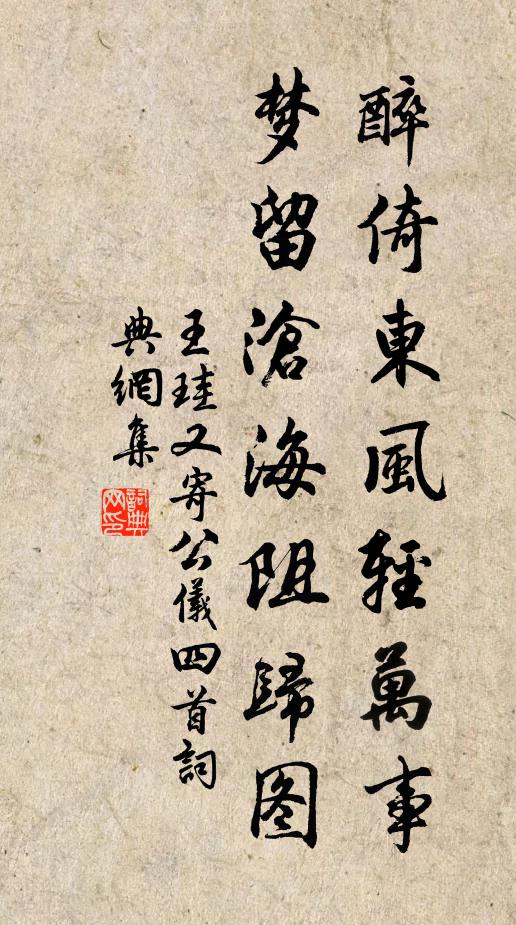 醉倚東風輕萬事
梦留滄海阻歸图
王珪又寄公儀四首詞
典網集
詞典
网印